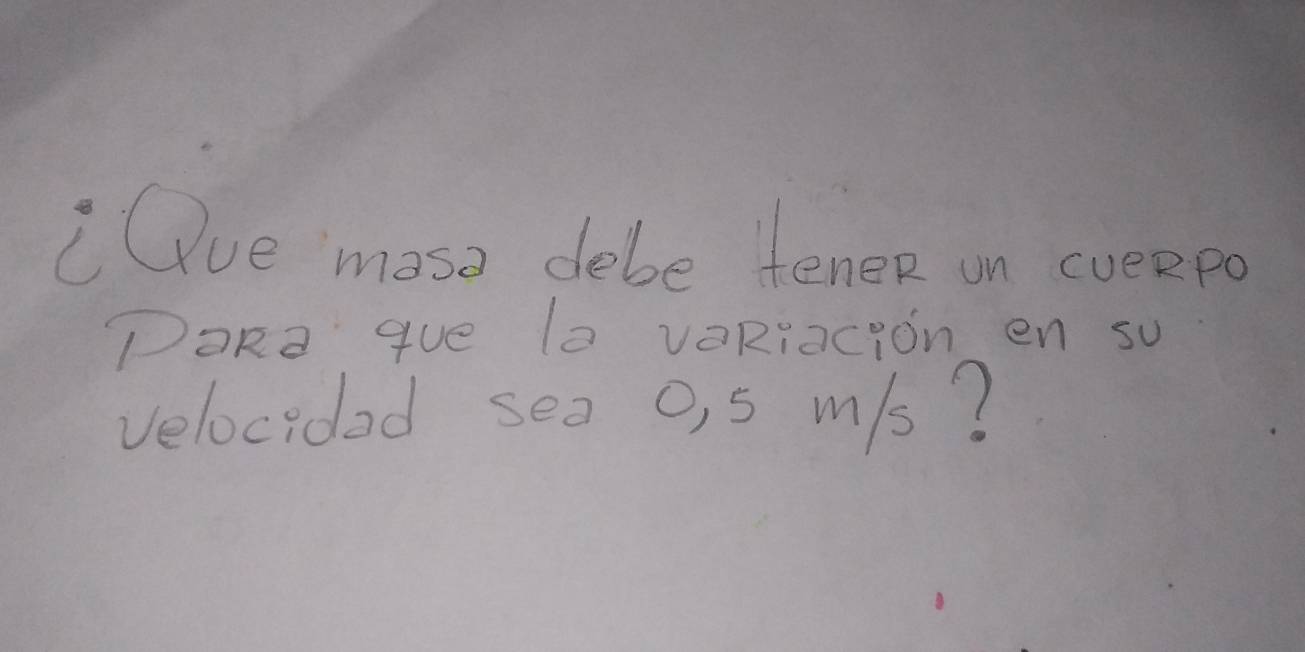 ¿Que masa debe tener un cuerpo
Para que la variación en su
velocidad sea 0,5 m/s?